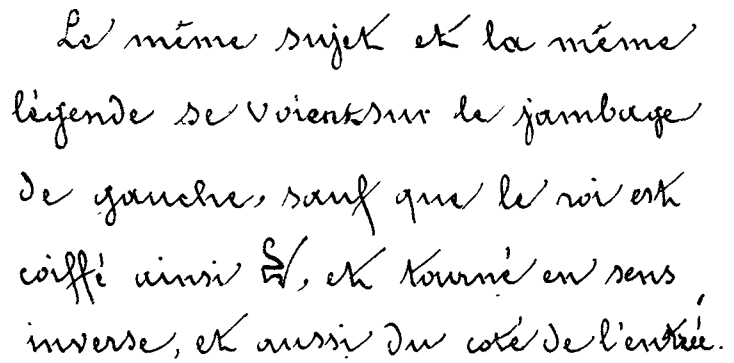 Le même sujet et la même
légende se voient sur le jambage
de gauche, sauf que le roi est
coiffé ainsi , et tourné en sens
inverse, et aussi du coté de l'entrée.